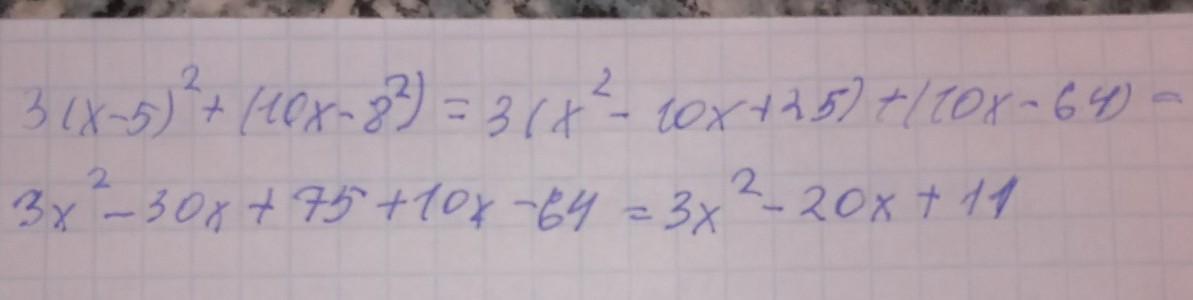 3(x-5)² + (10x-8²) = 3(x² - 10x + 25) + (10x - 64) =
3x² - 30x + 75 + 10x - 64 = 3x² - 20x + 11